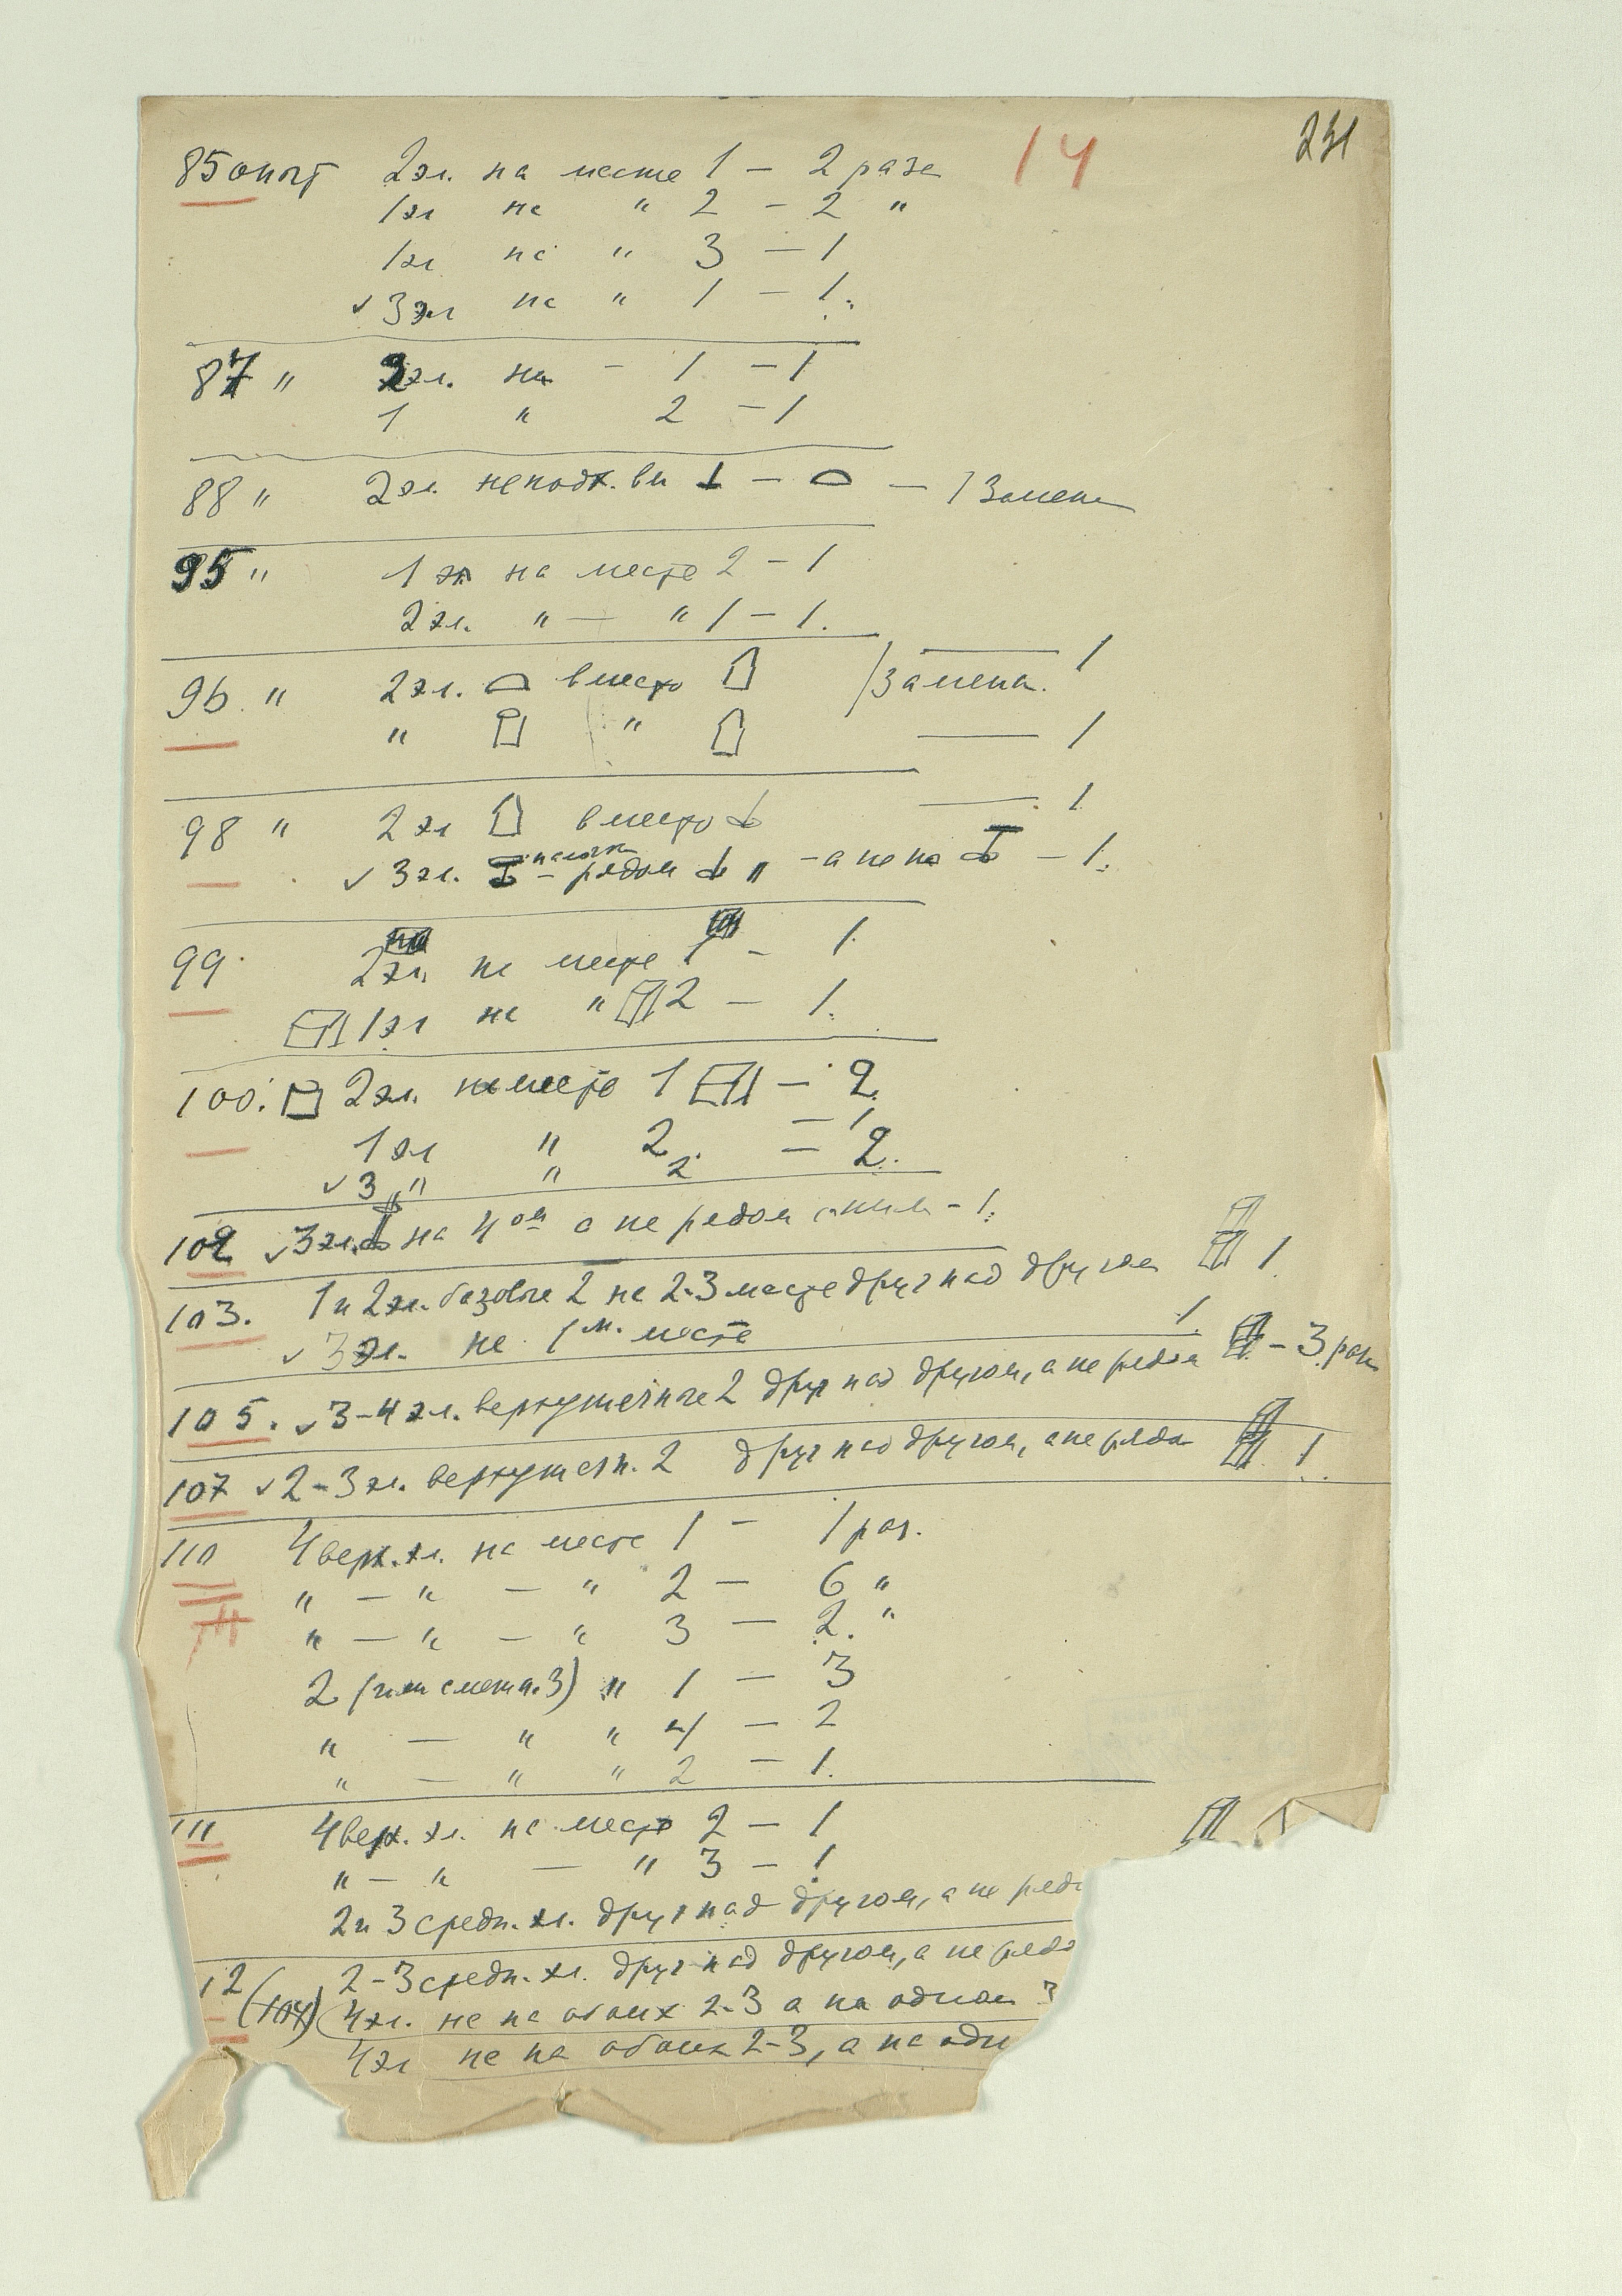 14 231
85 опыт 2 эл. на месте 1 – 2 раза
1 эл на " 2 – 2 "
1 эл на " 3 – 1
✓ 3 эл на " 1 – 1.
87 " 2 эл. на – 1 – 1
1 " 2 – 1
88 " 2 эл. – – 1 Замена
95 " 1 эл на месте 2 – 1
2 эл. " — " 1 – 1.
96. " 2 эл. вместо Замена. — 1
" " — 1
98 " 2 эл вместо — 1.
✓ 3 эл. палочка – рядом " – а не на – 1.
99. 2 эл. на месте 1 – 1.
1 эл на " 2 – 1.
100. 2 эл. на месте 1 – 2.
1 эл " 2. – 1
✓ 3 " " 2 = 2.
102 ✓ 3 эл. на 4ом а не рядом с ним – 1.
103. 1 и 2 эл. базовые 2 на 2-3 месте друг над другом 1.
✓ 3 эл. не 1 м. месте 1.
105. ✓ 3-4 эл. верхушечные 2 друг над другом, а не рядом – 3 раза
107 ✓ 2-3 эл. верхушечн. 2 друг над другом, а не рядом 1.
110 4 верх. эл. на месте 1 – 1 раз.
" — " — " 2 – 6 "
" — " — " 3 – 2. "
2 (или смеш. 3) " 1 – 3
" — " " 4 – 2
" — " " 2 – 1.
111 4 верх. эл. на месте 2 – 1
" — " — " 3 – 1
2 и 3 средн. эл. друг над другом, а не рядо
12 2-3 средн. эл. друг над другом, а не рядо
(104) 4 эл. не на обоих 2-3 а на одном 3
4 эл не на обоих 2-3, а на одн